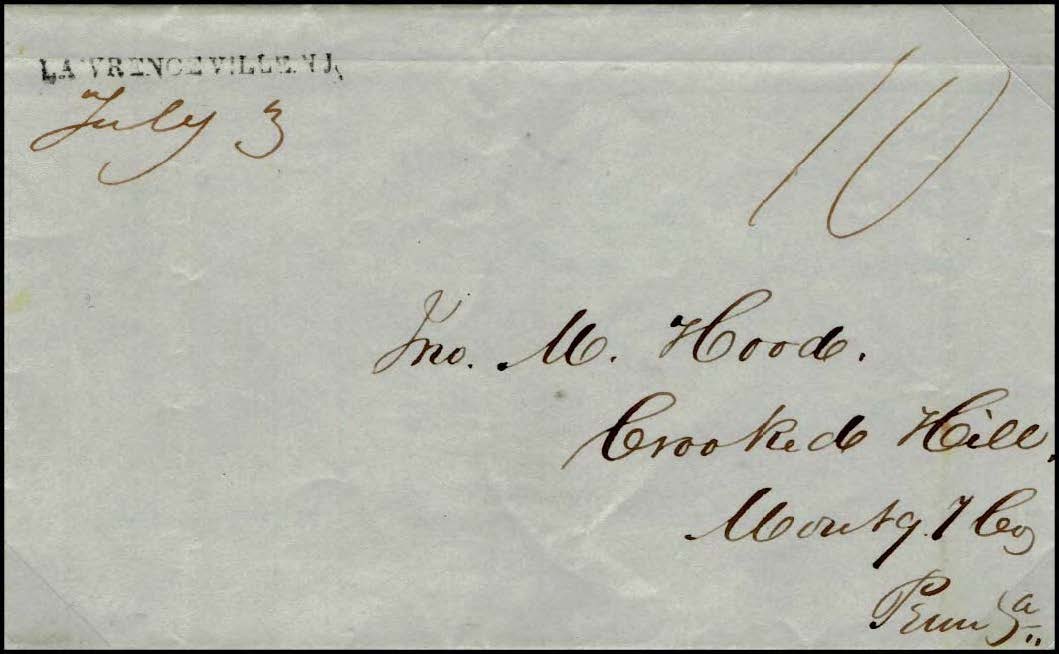 LAWRENCEVILLE N J
July 3
10
Jno. M. Hood.
Crooked Hill.
Montg.y Co
Penns.a